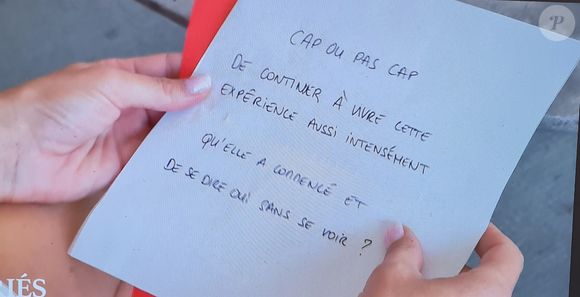 CAP OU PAS CAP
DE CONTINUER À VIVRE CETTE
EXPÉRIENCE AUSSI INTENSÉMENT
QU'ELLE A COMMENCÉ ET
DE SE DIRE OUI SANS SE VOIR ?
RIÉS
P